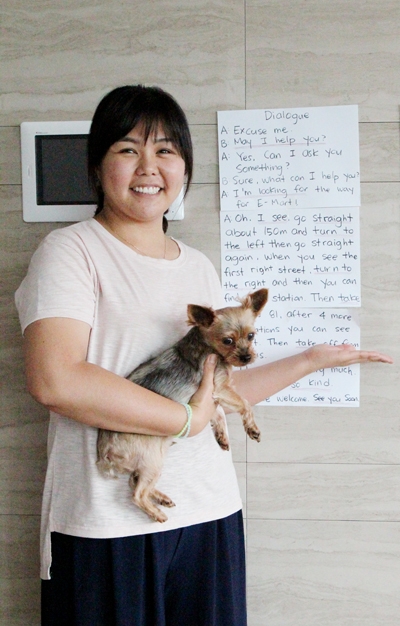 Dialogue
A Excuse me
B May I help you?
A: Yes. Can I ask you
Something?
B Sure, what can I help you?
A I'm looking for the way
for E-Mart!
A Oh. I see. go straight
about 150m and turn to
the left then go straight
again. when you see the
first right street, turn to
the right and then you can
station. Then take
81, after 4 more
you can see
Then take off
much
so kind
welcome. See you Soon